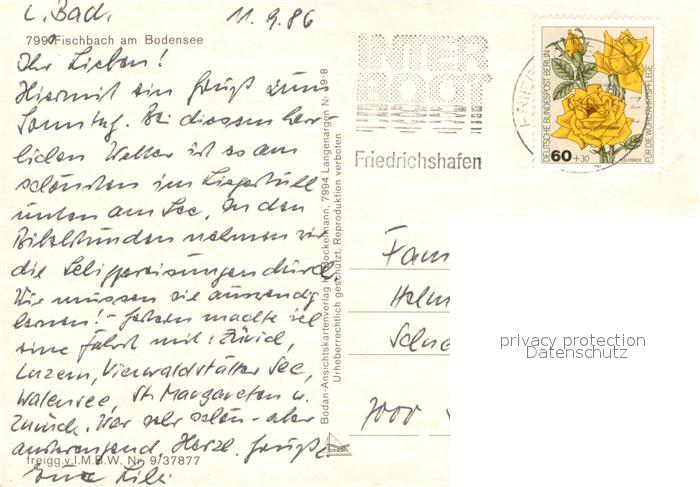 L. Bach. 11.9.86
799 Fischbach am Bodensee
Ihr Lieben!
Hiermit ein Gruß zum
Sonntag. Bei diesem herr-
lichen Wetter ist es am
schönsten im Liegestuhl
unten am See. In den
Bibelstunden nehmen wir
die Seligpreisungen durch
Wir müssen sie auswendig
lernen! - Gestern machte ich
eine Fahrt mit: Zürich,
Luzern, Vierwaldstätter See,
Walensee, St. Margareten u.
Zurück. War sehr schön - aber
anstrengend. Herzl. Grüße
Eure Lili
freigg.v.I.M.B.W. Nr. 9/37877
Bodan-Ansichtskartenverlag H. Bockelmann, 7994 Langenargen
Urheberrechtlich geschützt, Reproduktion verboten
bodan
INTER
BOOT
Friedrichshafen
DEUTSCHE BUNDESPOST BERLIN
60 +30
FÜR DIE WOHLFAHRTSPFLEGE
Fam
Helm
7000
privacy protection
Datenschutz